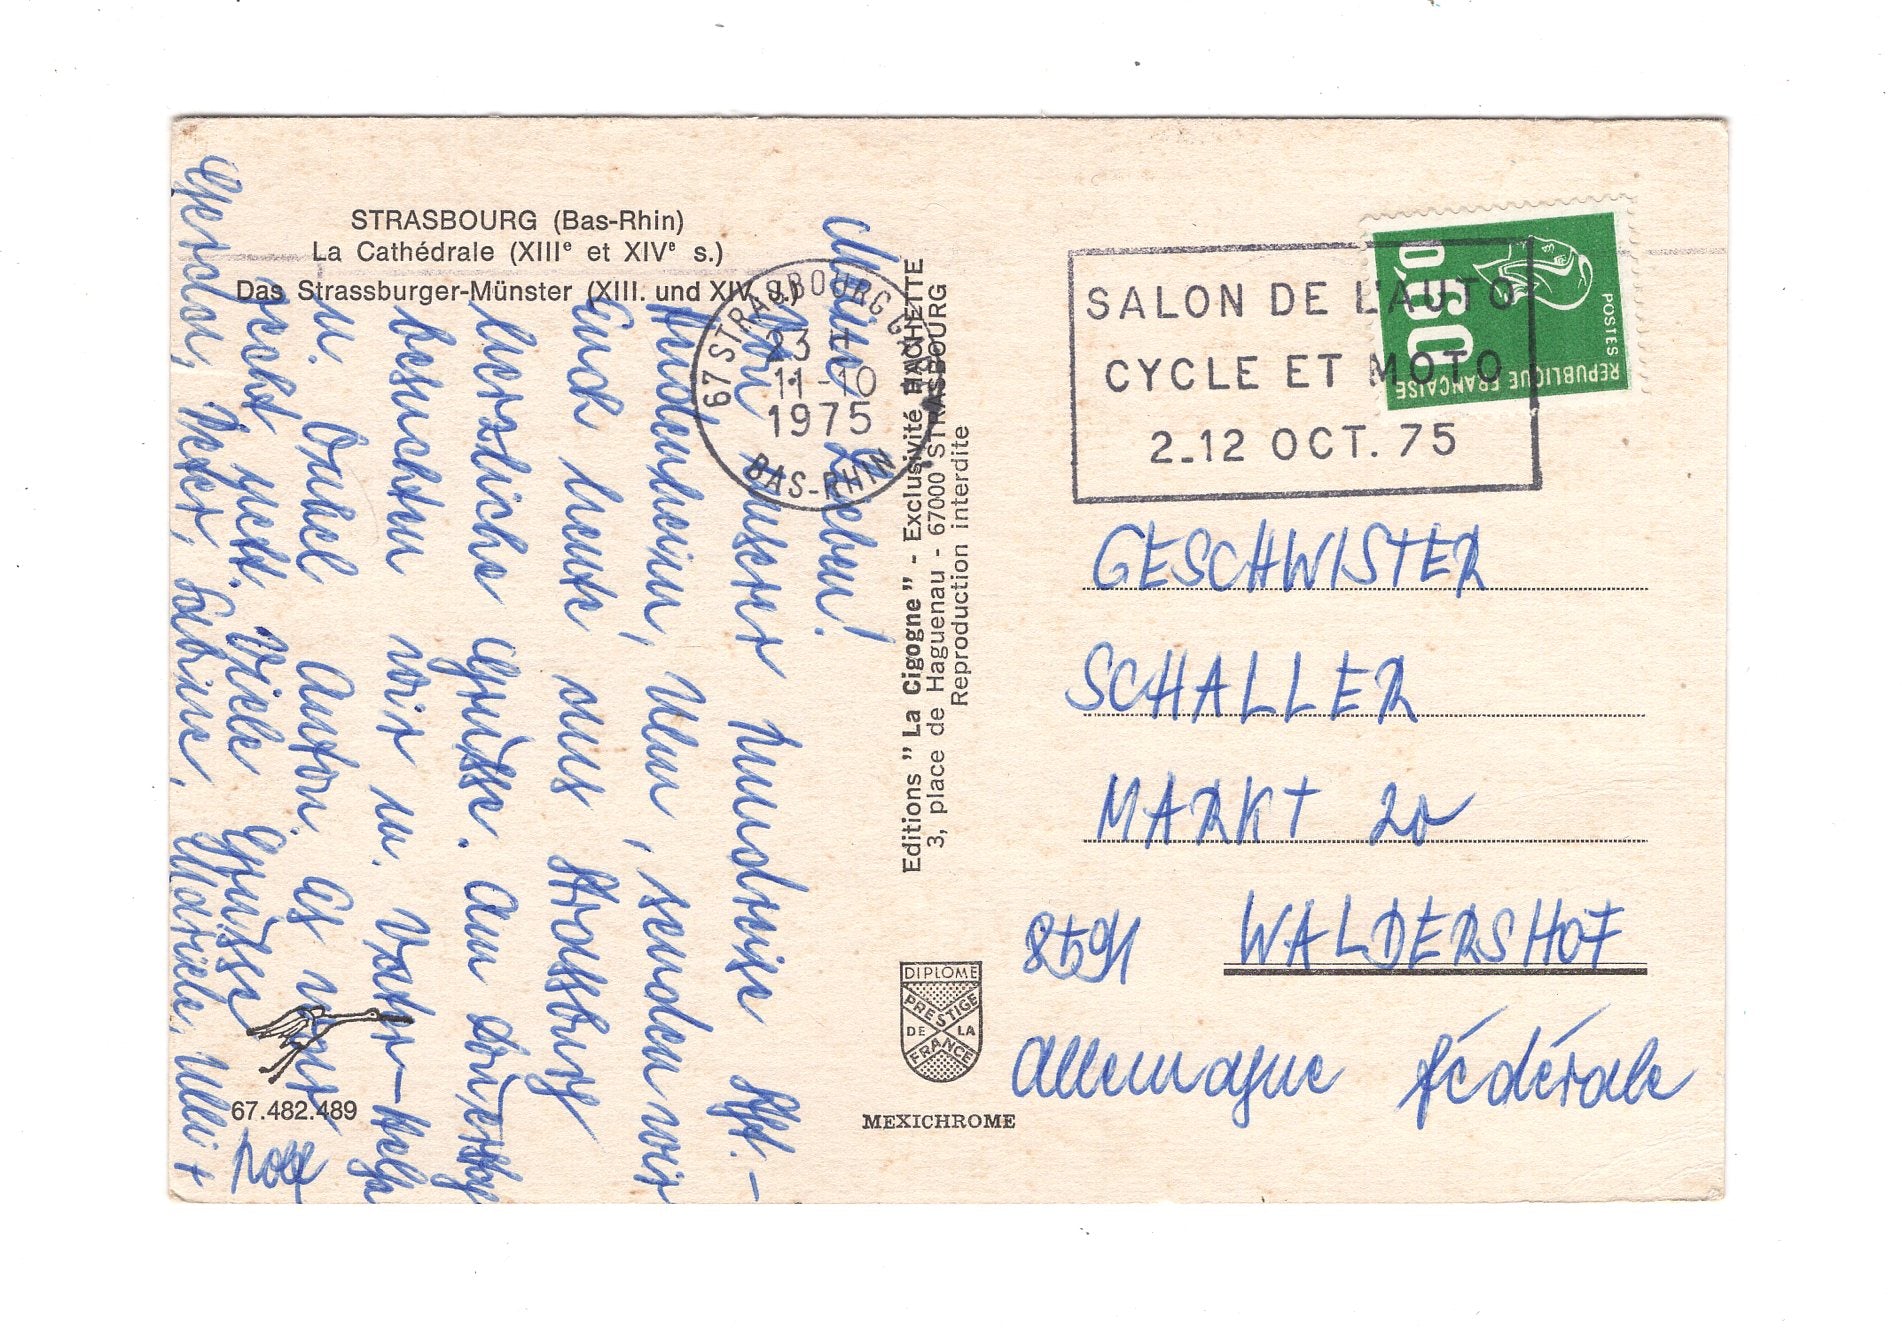 STRASBOURG (Bas-Rhin)
La Cathédrale (XIIIe et XIVe s.)
Das Strassburger-Münster (XIII. und XIV. J.)
Meine Lieben!
Von unserer Rundreise Fff.-
Rüdenheim, Ulm, senden wir
Euch heute aus Strassburg
herzliche Grüsse. Am
besuchten wir m. Vater-
u. Onkel Anton. Es
geht gut. Viele Grüsse
Rolf
Gerda, Peter, Sabine, Mariele, Ulli +
67.482.489
67 STRASBOURG
23 H
11-10
1975
BAS-RHIN
Editions "La Cigogne" - Exclusivité HACHETTE
3, place de Haguenau - 67000 STRASBOURG
Reproduction interdite
DIPLOME
PRESTIGE
DE LA
FRANCE
MEXICHROME
SALON DE L'AUTO
CYCLE ET MOTO
2_12 OCT. 75
0,60
POSTES
REPUBLIQUE FRANCAISE
GESCHWISTER
SCHALLER
MARKT 20
8591 WALDERSHOF
Allemagne fédérale